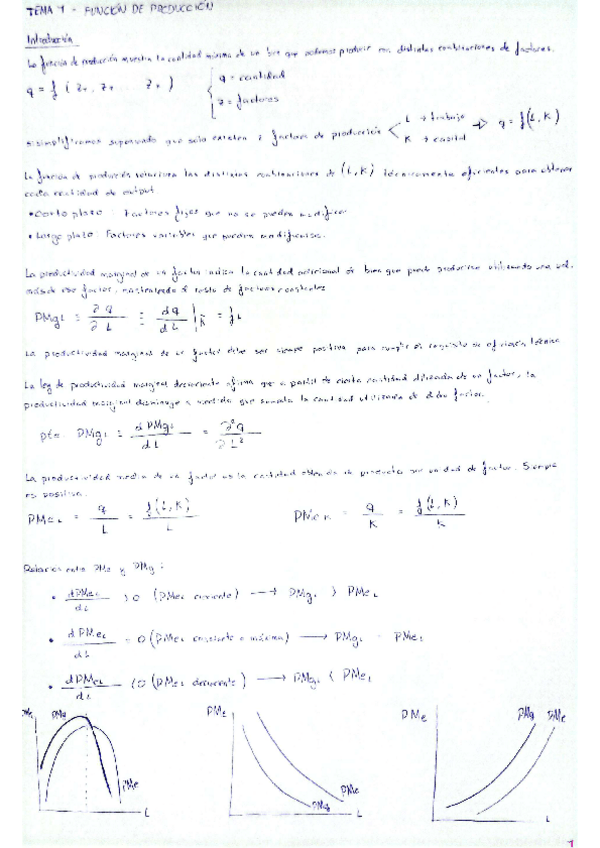 TEMA 1 - FUNCIÓN DE PRODUCCIÓN
Introducción
La función de producción muestra la cantidad máxima de un bien que podemos producir con distintas combinaciones de factores.
q = f ( z₁, z₂ ... zₙ ) { q = cantidad
z = factores
Si simplificamos suponiendo que solo existen 2 factores de producción < L → trabajo
K → capital ⇒ q = f(L, K)
La función de producción relaciona las distintas combinaciones de (L, K) técnicamente eficientes para obtener
cada cantidad de output
• Corto plazo : Factores fijos que no se pueden modificar
• Largo plazo : Factores variables que pueden modificarse.
La productividad marginal de un factor indica la cantidad adicional de bien que puede producirse utilizando una ud.
más de ese factor, manteniendo el resto de factores constantes
PMgL = ∂q/∂L = dq/dL | K̄ = fL
La productividad marginal de un factor debe ser siempre positiva para cumplir el requisito de eficiencia técnica
La ley de productividad marginal decreciente afirma que a partir de cierta cantidad utilizada de un factor, la
productividad marginal disminuye a medida que aumenta la cantidad utilizada de dicho factor.
PMgL = dPMgL/dL = ∂²q/∂L²
La productividad media de un factor es la cantidad de producto por unidad de factor. Siempre
es positiva.
PMeL = q/L = f(L, K)/L PMeK = q/K = f(L, K)/K
Relación entre PMe y PMg :
• dPMeL/dL > 0 (PMeL creciente) → PMgL > PMeL
• dPMeL/dL = 0 (PMeL constante o máxima) → PMgL = PMeL
• dPMeL/dL < 0 (PMeL decreciente) → PMgL < PMeL
PMe PMg PMe L
PMe PMe PMg L
PMe PMg PMe L
1